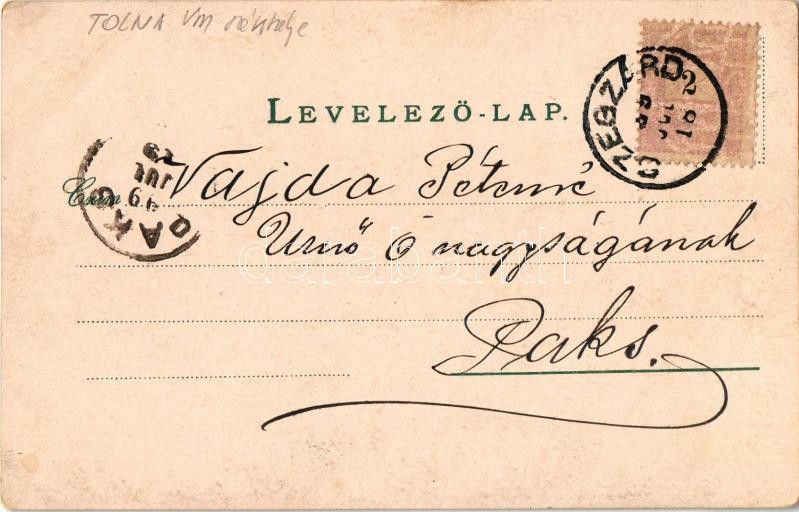 TOLNA VM székhelye
LEVELEZŐ-LAP.
SZEGZÁRD
PAKS
99
JUL
Czím
Vajda Péterné
Urnő Ő nagyságának
darabanth
Paks.